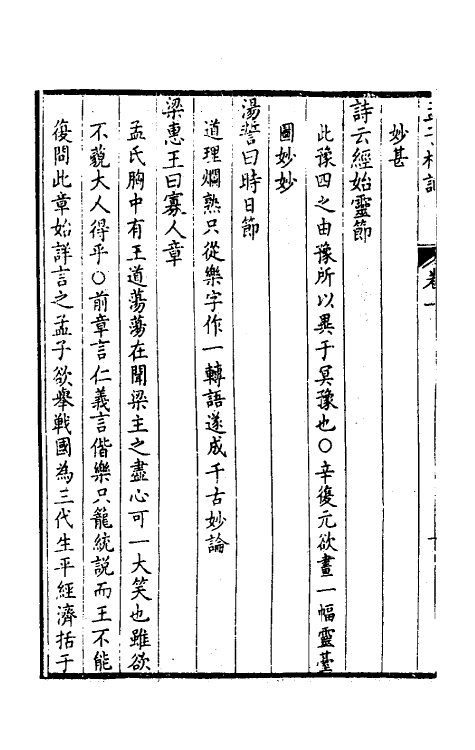 卷一
妙甚
詩云經始靈節
此豫四之由豫所以異于冥豫也○辛復元欲畫一幅靈臺
圖妙妙
湯誓曰時日節
道理爛熟只從樂字作一轉語遂成千古妙論
梁惠王曰寡人章
孟氏胸中有王道蕩蕩在聞梁主之盡心可一大笑也雖欲
不藐大人得乎○前章言仁義言偕樂只籠統說而王不能
復問此章始詳言之孟子欲舉戰國為三代生平經濟括于